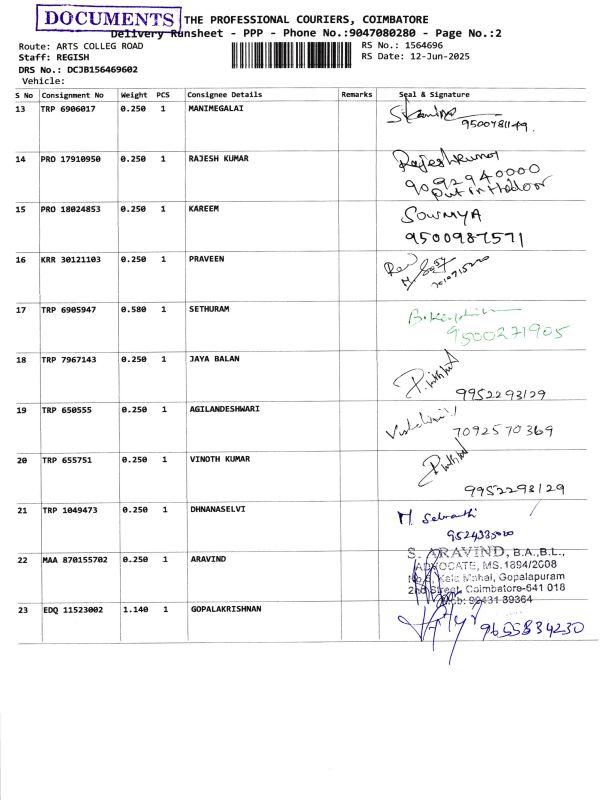 DOCUMENTS THE PROFESSIONAL COURIERS, COIMBATORE
Delivery Runsheet - PPP - Phone No.:9047080280 - Page No.:2
Route: ARTS COLLEG ROAD RS No.: 1564696
Staff: REGISH RS Date: 12-Jun-2025
DRS No.: DCJB156469602
Vehicle:
S No Consignment No Weight PCS Consignee Details Remarks Seal & Signature
13 TRP 6906017 0.250 1 MANIMEGALAI
9500781149.
14 PRO 17910950 0.250 1 RAJESH KUMAR Rajeshkumar
9092940000
Put in the door
15 PRO 18024853 0.250 1 KAREEM SOWMYA
9500987571
16 KRR 30121103 0.250 1 PRAVEEN
17 TRP 6905947 0.580 1 SETHURAM
9500271905
18 TRP 7967143 0.250 1 JAYA BALAN
9952293129
19 TRP 650555 0.250 1 AGILANDESHWARI
7092570369
20 TRP 655751 0.250 1 VINOTH KUMAR
9952293129
21 TRP 1049473 0.250 1 DHNANASELVI M
22 MAA 870155702 0.250 1 ARAVIND S. ARAVIND, B.A.,B.L.,
ADVOCATE, MS.1894/2008
Kala Mahal, Gopalapuram
2nd Street, Coimbatore-641 018
Mob: 99431 39364
23 EDQ 11523002 1.140 1 GOPALAKRISHNAN
9655834230